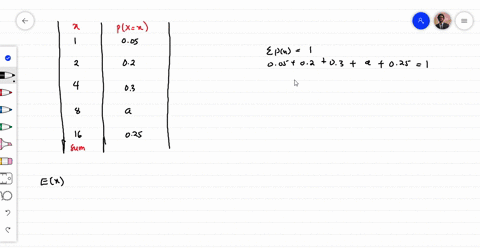 x P(X=x)
1 0.05
2 0.2
4 0.3
8 a
16 0.25
sum
Σp(x) = 1
0.05 + 0.2 + 0.3 + a + 0.25 = 1
E(x)